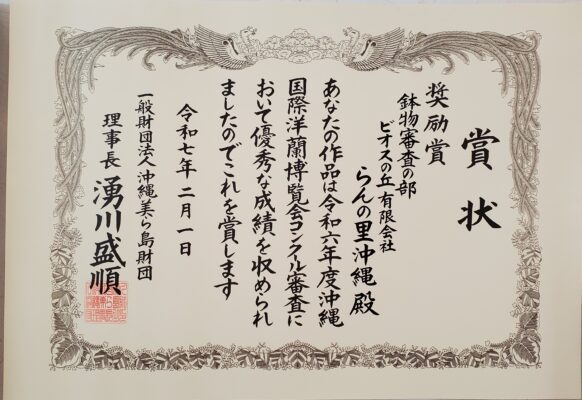 賞状
奨励賞
鉢物審査の部
ビオスの丘 有限会社
らんの里沖縄 殿
あなたの作品は令和六年度沖縄
国際洋蘭博覧会コンクール審査に
おいて優秀な成績を収められ
ましたのでこれを賞します
令和七年 二月 一日
一般財団法人沖縄美ら島財団
理事長 湧川盛順